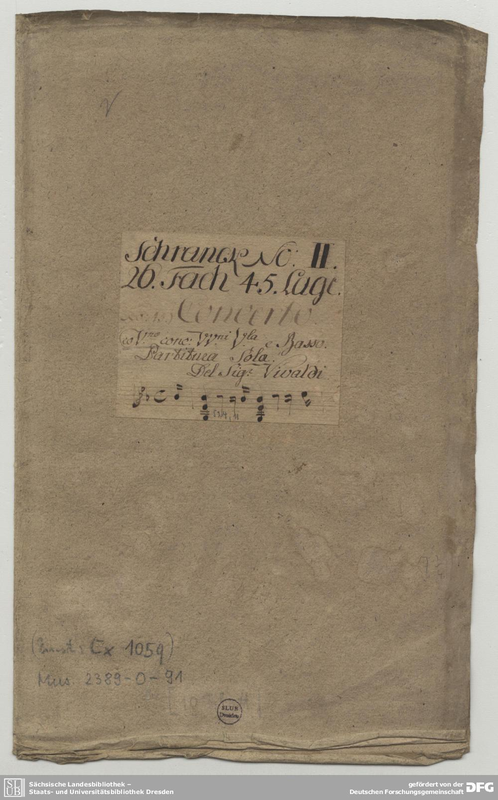 V
Schranck No: II.
26. Fach 45. Lage.
Concerto
co Vno conc: VVni Vla e Basso.
Partitura Sola.
Del Sigr Vivaldi
Cx 1059)
Mus. 2389-O-91
SLUB
Dresden
SLUB
Sächsische Landesbibliothek –
Staats- und Universitätsbibliothek Dresden
gefördert von der
Deutschen Forschungsgemeinschaft
DFG